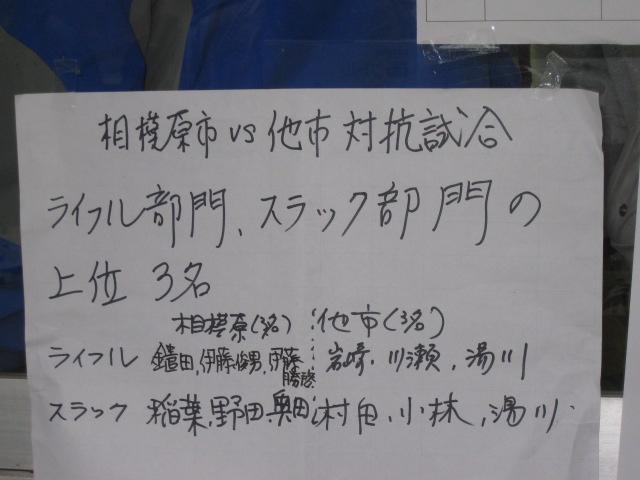 相模原市 vs 他市 対抗試合
ライフル部門、スラック部門の
上位 3名
相模原(3名) : 他市(3名)
ライフル 鑓田, 伊藤俊男, 伊藤 : 岩崎, 川瀬, 湯川
スラック 稲葉, 野田, 奥田 : 村田, 小林, 湯川